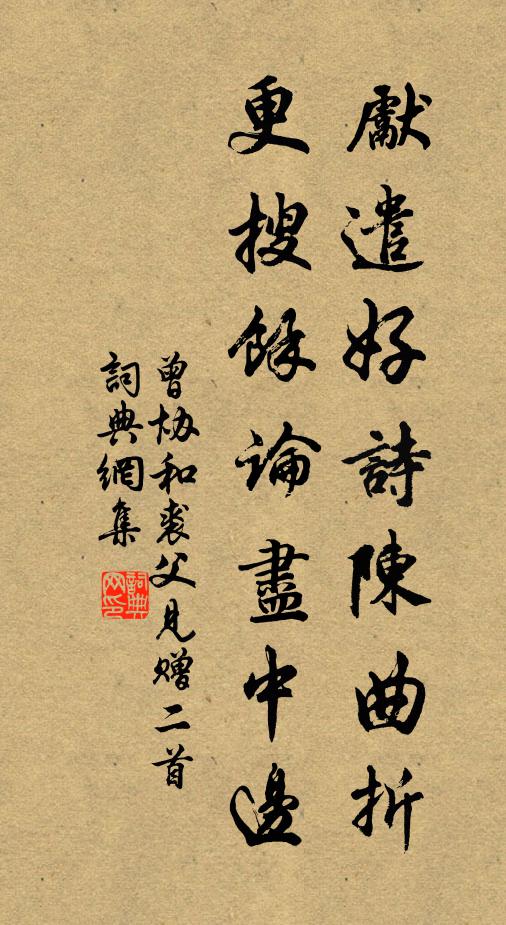 獻遣好詩陳曲折
更搜餘論盡中邊
曾協和裘父見贈二首
詞典網集
詞典
网印